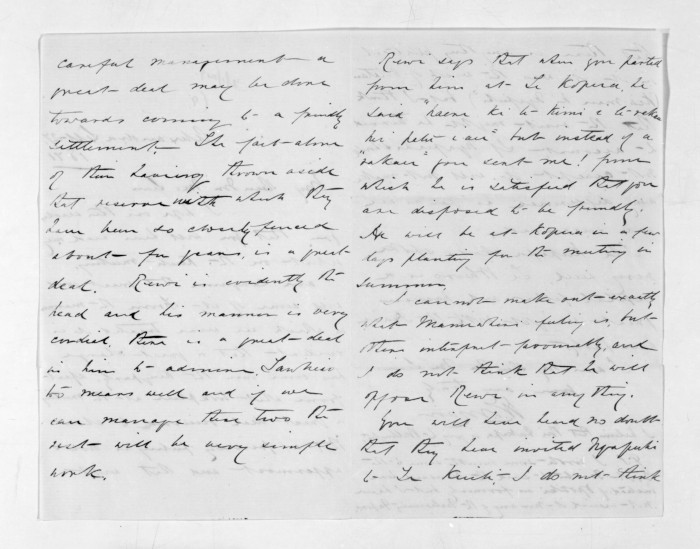 careful management a
great deal may be done
towards coming to a friendly
settlement. The fact alone
of their having thrown aside
that reserve with which they
have been so closely fenced
about for years, is a great
deal. Rewi is evidently the
head and his manner is very
cordial, there is a great deal
in him to admire. Tawhiao
too means well and if we
can manage these two the
rest will be very simple
work.
Rewi says that when you parted
from him at Te Kopua, he
said "haere ki te kimi i te rakau
hei patu i au" but instead of a
"rakau" you sent me! from
which he is satisfied that you
are disposed to be friendly.
He will be at Kopua in a few
days planting for the meeting in
Summer.
I cannot make out exactly
what Manuhiri's feeling is, but
others interpret favourably, and
I do not think that he will
oppose Rewi in anything.
You will have heard no doubt
that they have invited Ngapuhi
to Te Kuiti. I do not think